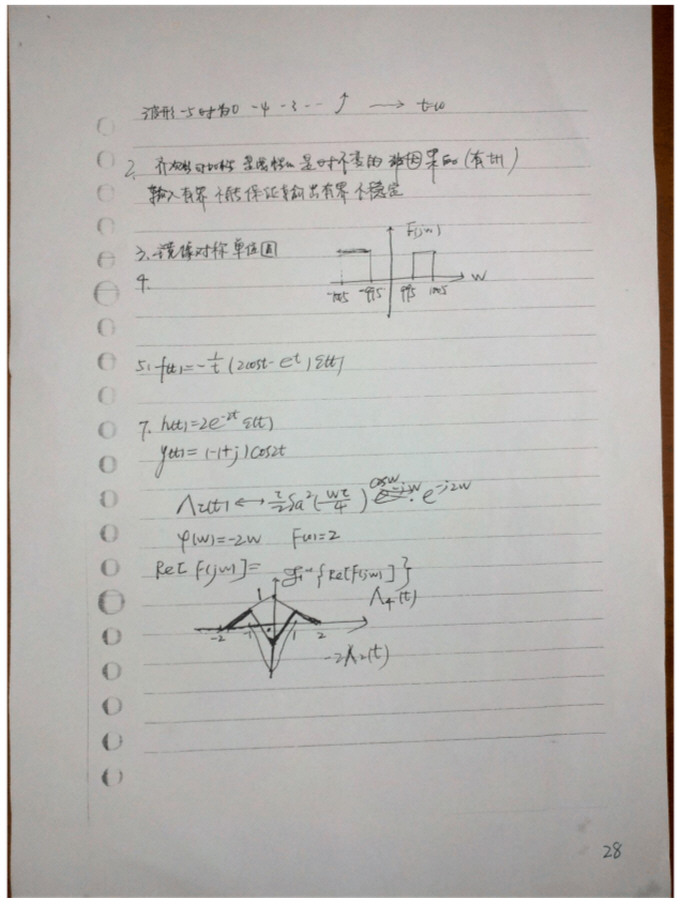 波形 -5时为0 -4 -3 ... ↑ → t→∞
2. 齐次 可加 是 是时不变的 非因果的(有
输入有界 不能保证输出有界 不稳定
3. 镜像对称 单位圆
F(jw)
4.
-105 -95 95 105 w
5. f(t)=-1/t(2cost-e^t)ε(t)
7. h(t)=2e^{-2t}ε(t)
y(t)=(-1+j)cos2t
Λτ(t)↔τ/2Sa²(wτ/4) cosw·e^{-j2w}
φ(w)=-2w F(0)=2
Re[F(jw)]= F⁻¹{Re[F(jw)]}
1 Λ₄(t)
-2 -1 1 2
-2Λ₂(t)
28